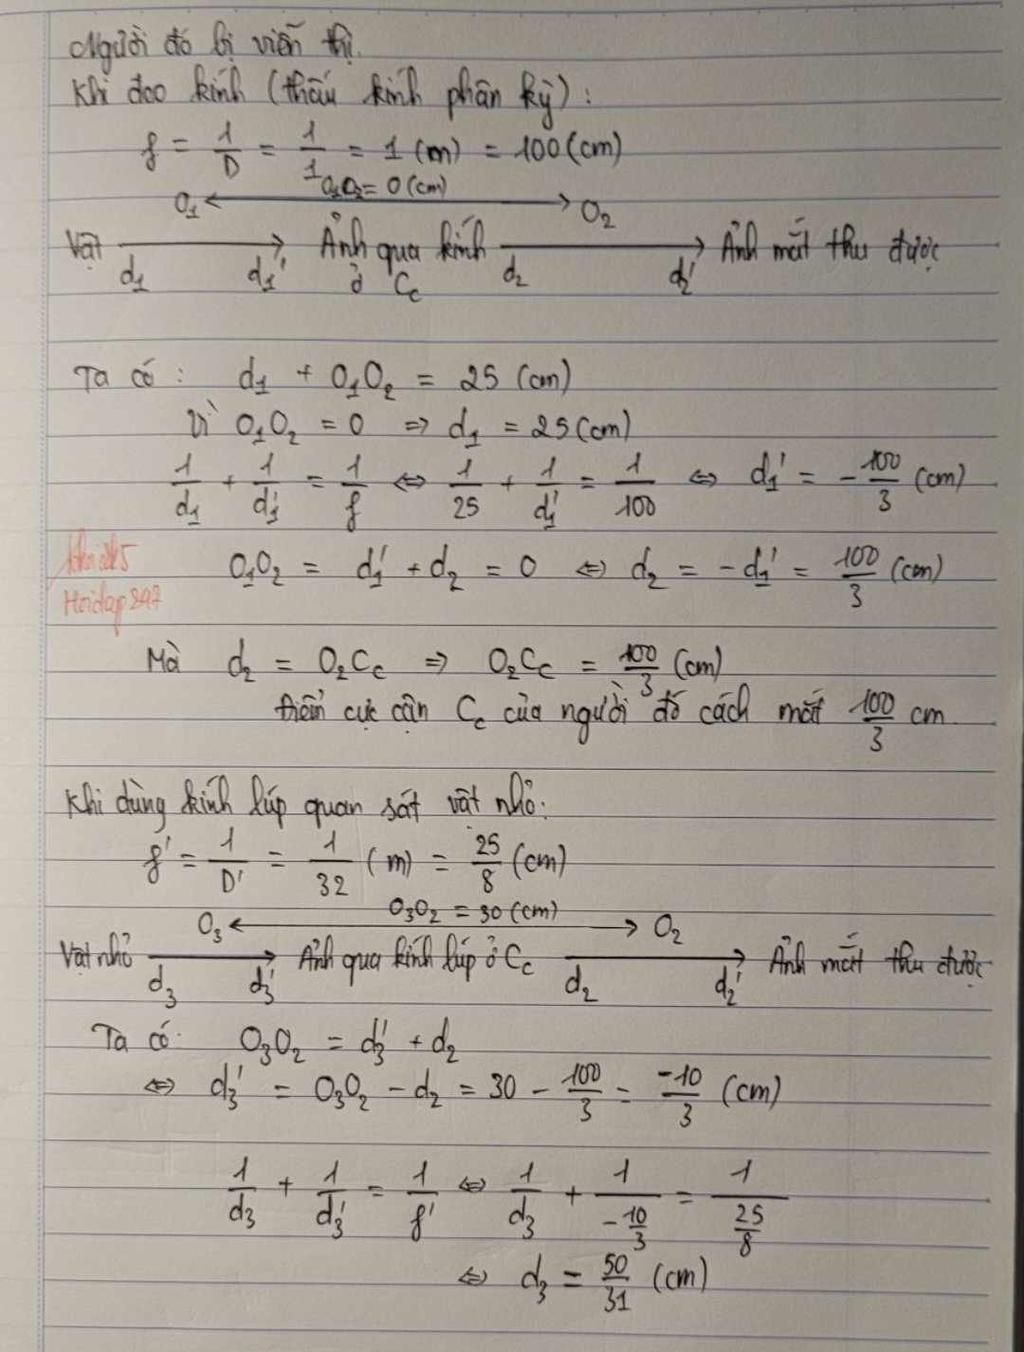 Người đó bị viễn thị.
Khi đeo kính (thấu kính phân kỳ):
f = 1/D = 1/1 = 1 (m) = 100 (cm)
O₁ O₁O₂ = 0 (cm) O₂
Vật d₁ d₁' Ảnh qua kính ở Cc d₂ d₂' Ảnh mắt thu được
Ta có: d₁ + O₁O₂ = 25 (cm)
Vì O₁O₂ = 0 ⇒ d₁ = 25 (cm)
1/d₁ + 1/d₁' = 1/f ⇔ 1/25 + 1/d₁' = 1/100 ⇔ d₁' = -100/3 (cm)
O₁O₂ = d₁' + d₂ = 0 ⇔ d₂ = -d₁' = 100/3 (cm)
Hoidap247
Mà d₂ = O₂Cc ⇒ O₂Cc = 100/3 (cm)
Điểm cực cận Cc của người đó cách mắt 100/3 cm
Khi dùng kính lúp quan sát vật nhỏ:
f' = 1/D' = 1/32 (m) = 25/8 (cm)
O₃ O₃O₂ = 30 (cm) O₂
Vật nhỏ d₃ d₃' Ảnh qua kính lúp ở Cc d₂ d₂' Ảnh mắt thu được
Ta có: O₃O₂ = d₃' + d₂
⇔ d₃' = O₃O₂ - d₂ = 30 - 100/3 = -10/3 (cm)
1/d₃ + 1/d₃' = 1/f' ⇔ 1/d₃ + 1/(-10/3) = 1/(25/8)
⇔ d₃ = 50/31 (cm)